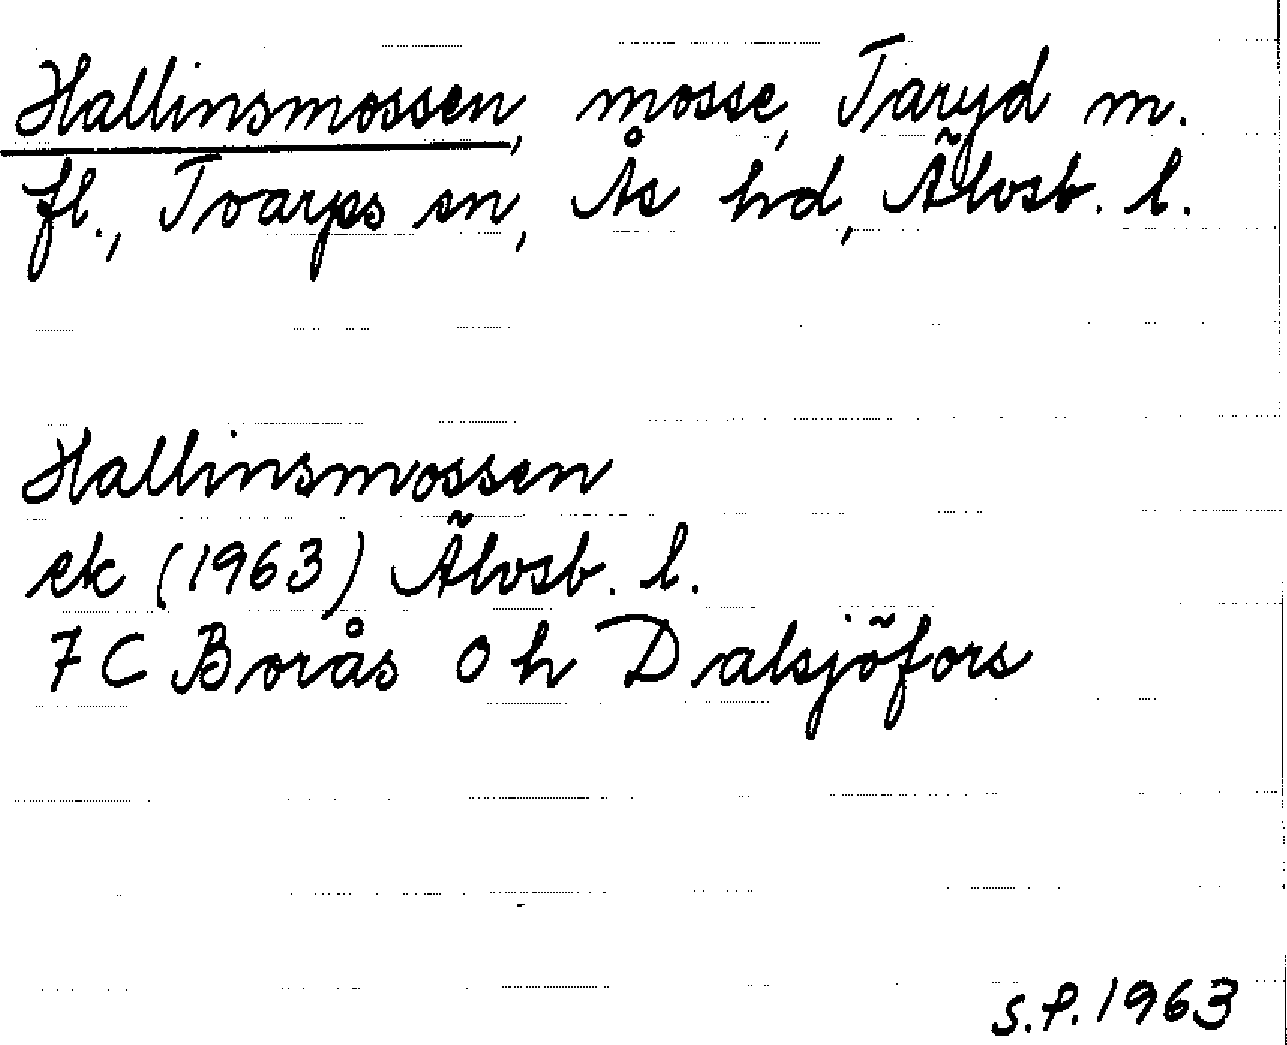 Hallinsmossen, mosse, Taryd m.
fl., Tvarps sn, Ås hd, Älvsb. l.
Hallinsmossen
ek (1963) Älvsb. l.
7 C Borås 0 h Dalsjöfors
S.P. 1963